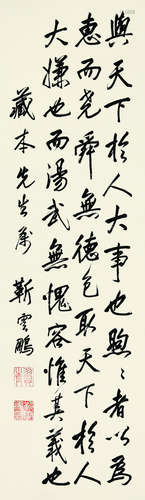 與天下於人大事也煦〻者以為
惠而堯舜無德色取天下於人
大嫌也而湯武無愧容惟其義也
藏本先生屬 靳雲鵬